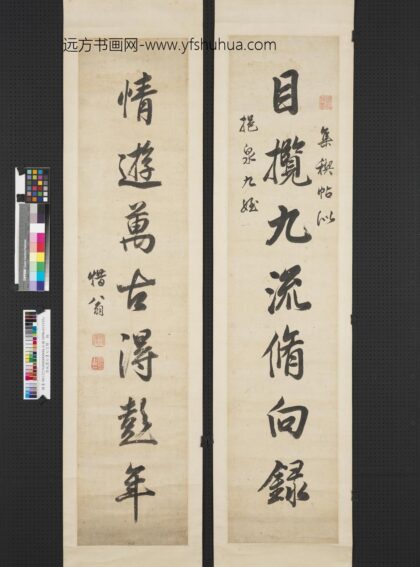 远方书画网-www.yfshuhua.com
集稧帖似
目攬九流脩向録
挹泉九
情遊萬古得彭年
惜翁